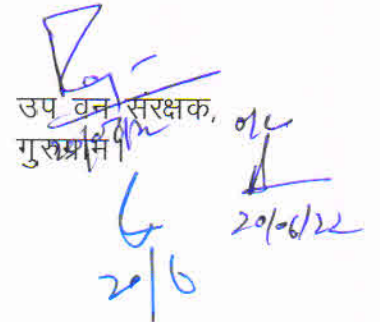 उप वन संरक्षक,
गुरुग्राम।
o/c
20/06/22
20/6